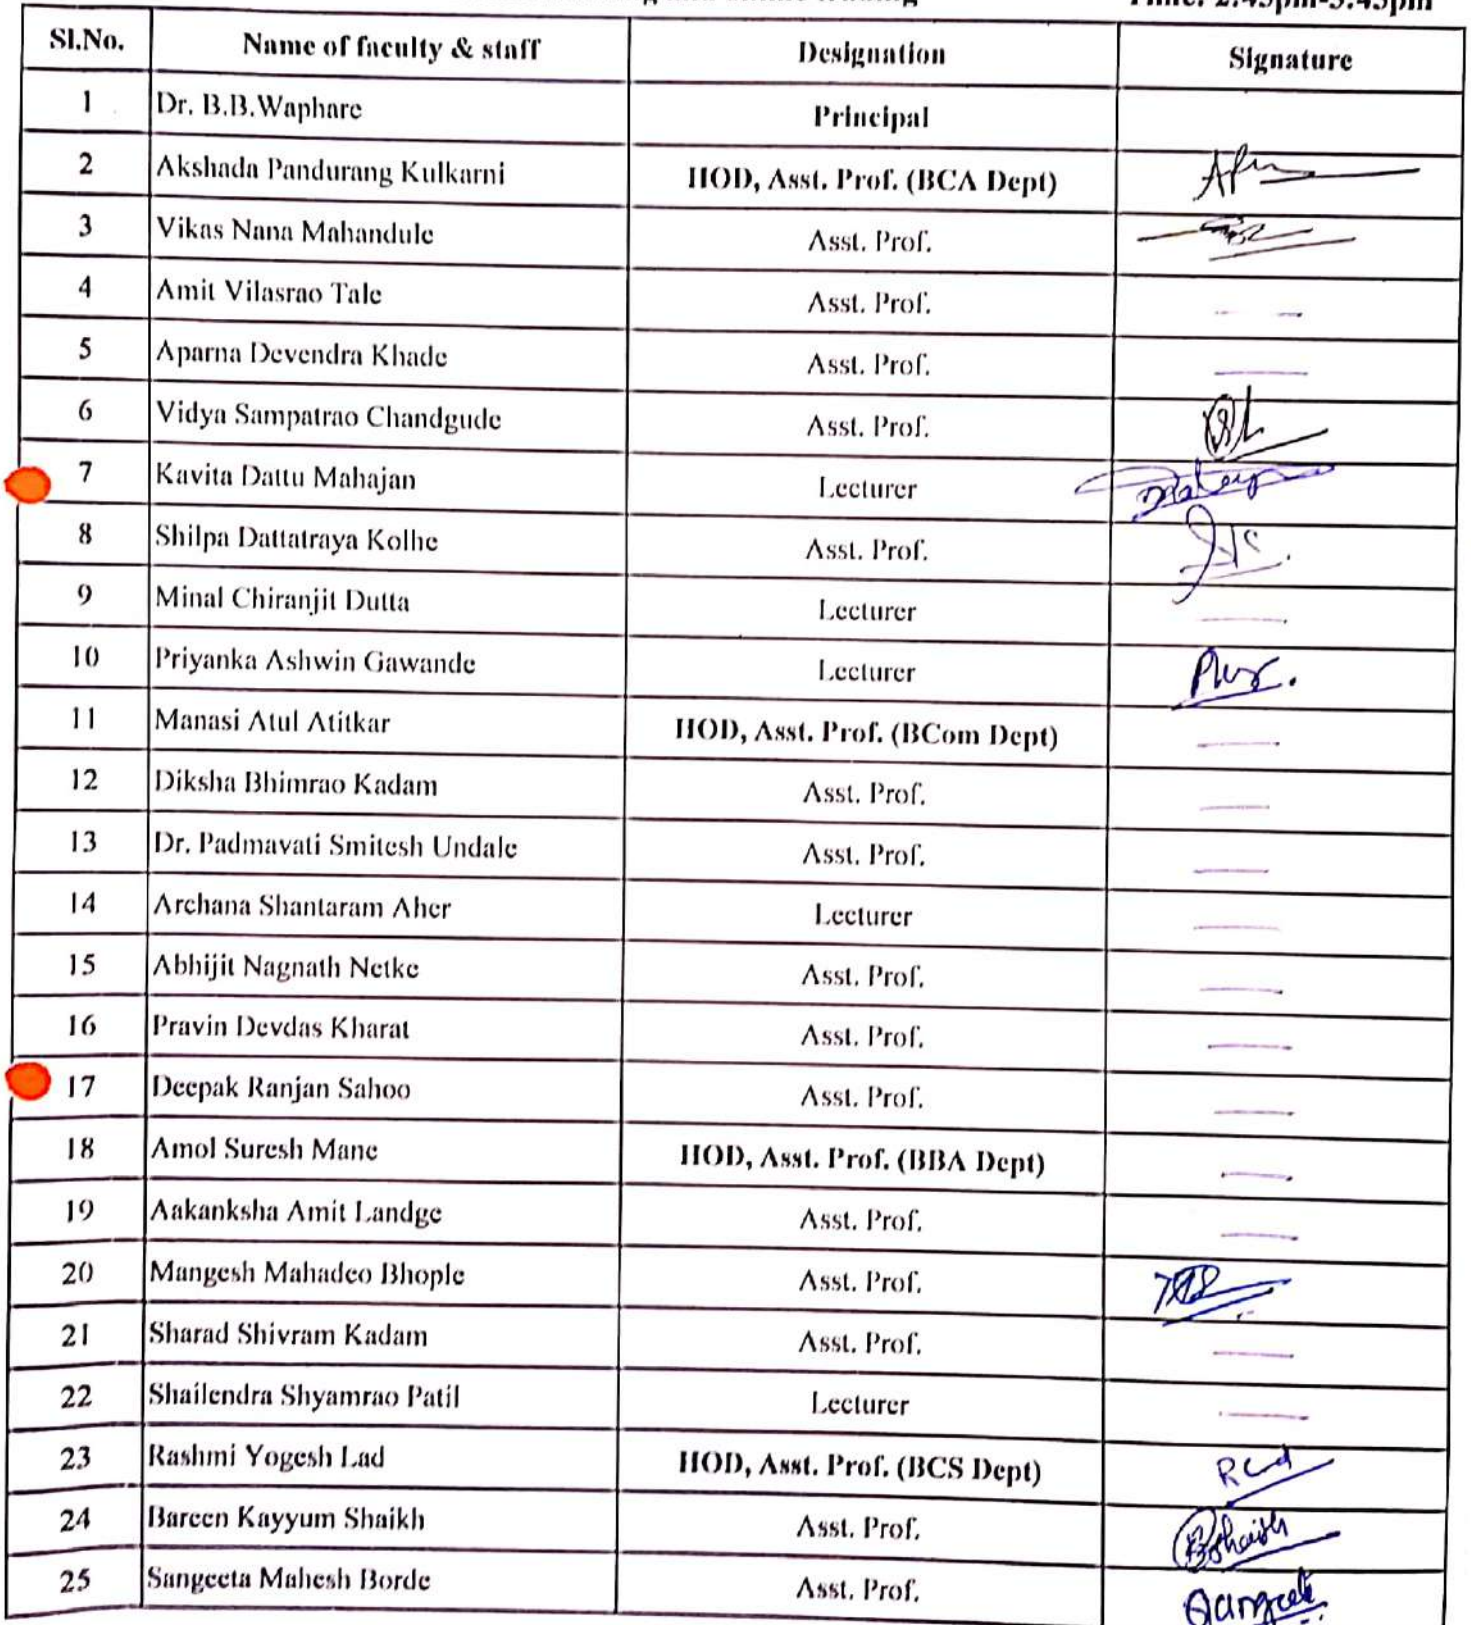 Time: 2:45pm-3:45pm
Sl.No. Name of faculty & staff Designation Signature
1 Dr. B.B.Waphare Principal
2 Akshada Pandurang Kulkarni HOD, Asst. Prof. (BCA Dept)
3 Vikas Nana Mahandule Asst. Prof.
4 Amit Vilasrao Tale Asst. Prof. - -
5 Aparna Devendra Khade Asst. Prof. —
6 Vidya Sampatrao Chandgude Asst. Prof.
7 Kavita Dattu Mahajan Lecturer
8 Shilpa Dattatraya Kolhe Asst. Prof.
9 Minal Chiranjit Dutta Lecturer —
10 Priyanka Ashwin Gawande Lecturer
11 Manasi Atul Atitkar HOD, Asst. Prof. (BCom Dept) —
12 Diksha Bhimrao Kadam Asst. Prof. —
13 Dr. Padmavati Smitesh Undale Asst. Prof. —
14 Archana Shantaram Aher Lecturer —
15 Abhijit Nagnath Netke Asst. Prof. —
16 Pravin Devdas Kharat Asst. Prof. —
17 Deepak Ranjan Sahoo Asst. Prof. —
18 Amol Suresh Mane HOD, Asst. Prof. (BBA Dept) —
19 Aakanksha Amit Landge Asst. Prof. —
20 Mangesh Mahadeo Bhople Asst. Prof.
21 Sharad Shivram Kadam Asst. Prof. —
22 Shailendra Shyamrao Patil Lecturer —
23 Rashmi Yogesh Lad HOD, Asst. Prof. (BCS Dept)
24 Bareen Kayyum Shaikh Asst. Prof. BShaikh
25 Sangeeta Mahesh Borde Asst. Prof. Sangeeta